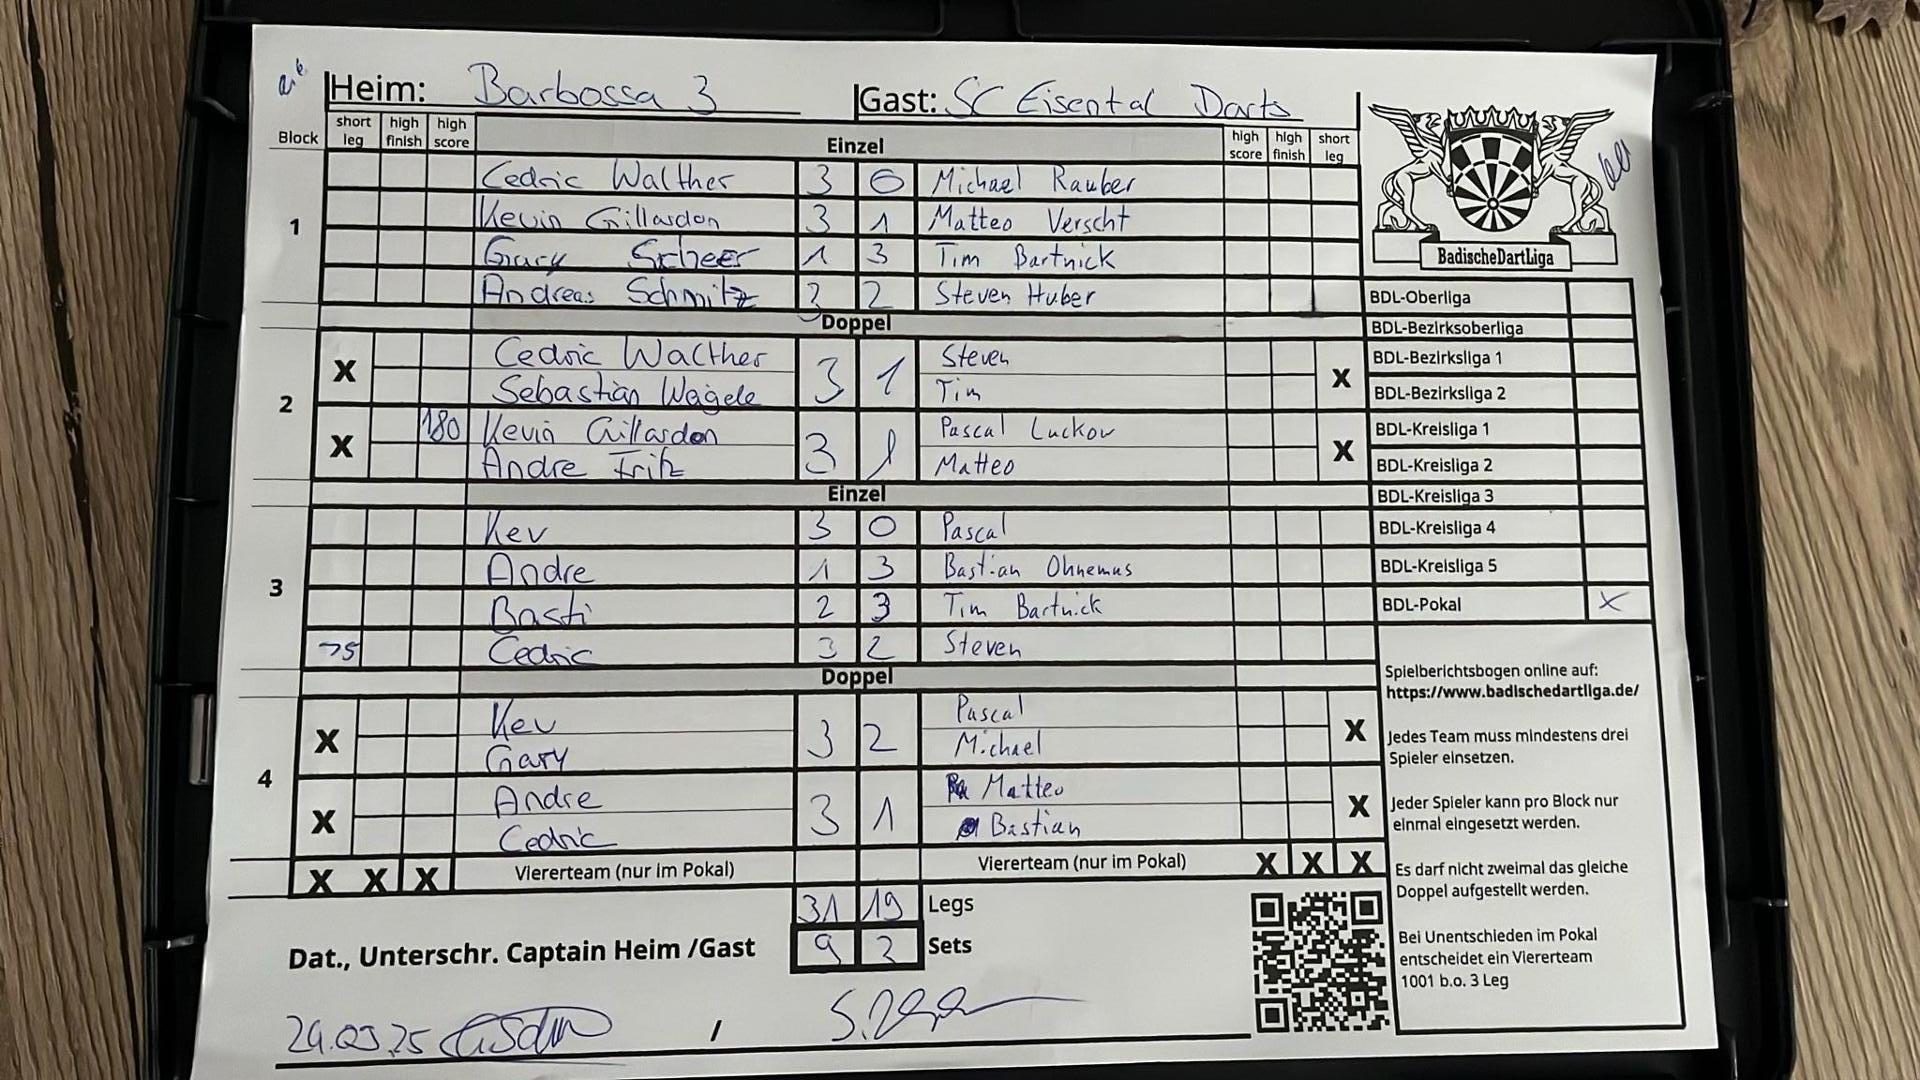 Heim: Barbossa 3 Gast: SC Eisental Darts
Block short leg high finish high score Einzel high score high finish short leg
1
Cedric Walther 3 0 Michael Rauber
Kevin Gillardon 3 1 Matteo Verscht
Gary Scheer 1 3 Tim Bartnick
Andreas Schmitz 3 2 Steven Huber
Doppel
2
X Cedric Walther 3 1 Steven X
Sebastian Wagele Tim
X 180 Kevin Gillardon 3 1 Pascal Luckov X
Andre Fritz Matteo
Einzel
3
Kev 3 0 Pascal
Andre 1 3 Bastian Ohnemus
Basti 2 3 Tim Bartnick
Cedric 3 2 Steven
Doppel
4
X Kev 3 2 Pascal X
Gary Michael
X Andre 3 1 Matteo X
Cedric Bastian
X X X Viererteam (nur im Pokal) Viererteam (nur im Pokal) X X X
31 19 Legs
Dat., Unterschr. Captain Heim /Gast 9 3 Sets
29.03.25 /
BadischeDartLiga
BDL-Oberliga
BDL-Bezirksoberliga
BDL-Bezirksliga 1
BDL-Bezirksliga 2
BDL-Kreisliga 1
BDL-Kreisliga 2
BDL-Kreisliga 3
BDL-Kreisliga 4
BDL-Kreisliga 5
BDL-Pokal X
Spielberichtsbogen online auf:
https://www.badischedartliga.de/
Jedes Team muss mindestens drei
Spieler einsetzen.
Jeder Spieler kann pro Block nur
einmal eingesetzt werden.
Es darf nicht zweimal das gleiche
Doppel aufgestellt werden.
Bei Unentschieden im Pokal
entscheidet ein Viererteam
1001 b.o. 3 Leg